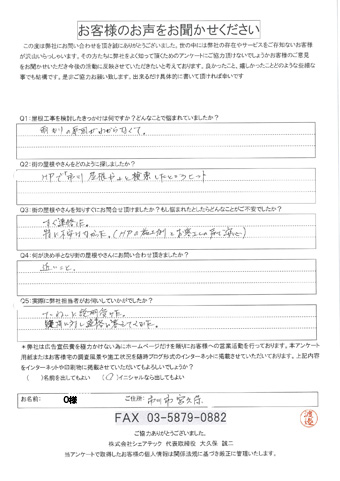 お客様のお声をお聞かせください
この度は弊社にお問い合わせを頂き誠にありがとうございました。世の中には弊社の存在やサービスをご存知ないお客様
が沢山いらっしゃいます。その方たちに弊社をよく知って頂くためのアンケートにご協力頂けないでしょうか?お客様のご意見
をお聞かせいただき今後の活動に反映させていただきたいと考えております。良かったこと、嬉しかったことどのような些細な
事でも結構です。是非ご協力お願い致します。出来るだけ具体的に書いて頂ければ幸いです
Q1:屋根工事を検討したきっかけは何ですか?どんなことで悩まれていましたか?
雨もりの原因がわからなくて。
Q2:街の屋根やさんをどのように探しましたか?
HPで市川 屋根やと検索したところヒット
Q3:街の屋根やさんを知りすぐにお問合せ頂けましたか?もし悩まれたとしたらどんなことがご不安でしたか?
すぐ連絡した。
特に不安はなかった。(HPの施工例とお客さんの声で安心)
Q4:何が決め手となり街の屋根やさんにお問い合わせ頂きましたか?
近いこと。
Q5:実際に弊社担当者がお伺いしていかがでしたか?
ていねいに説明受けた。
質問に対し適格に答えてくれた。
*弊社は広告宣伝費を極力かけない為にホームページだけを頼りにお客様への営業活動を行っております。本アンケート
用紙またはお客様宅の調査風景や施工状況を随時ブログ形式のインターネットに掲載させていただいております。上記内容
をインターネットや印刷物に掲載させていただいてもよろしいでしょうか?
( )名前を出してもよい (○)イニシャルなら出してもよい
お名前: O様 ご住所: 市川市宮久保
FAX 03-5879-0882
渡邉
ご協力ありがとうございました。
株式会社シェアテック 代表取締役 大久保 誠二
当アンケートで取得したお客様の個人情報は関係法規に基づき厳正に管理いたします。